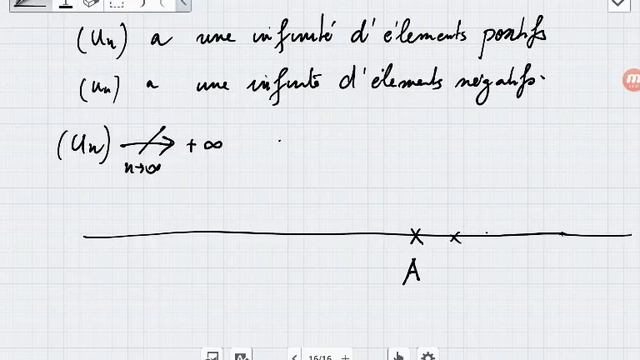 (Un) a une infinité d'élements positifs
(un) a une infinité d'élements négatifs.
(Un) ↛ +∞
n→∞
A
16/16